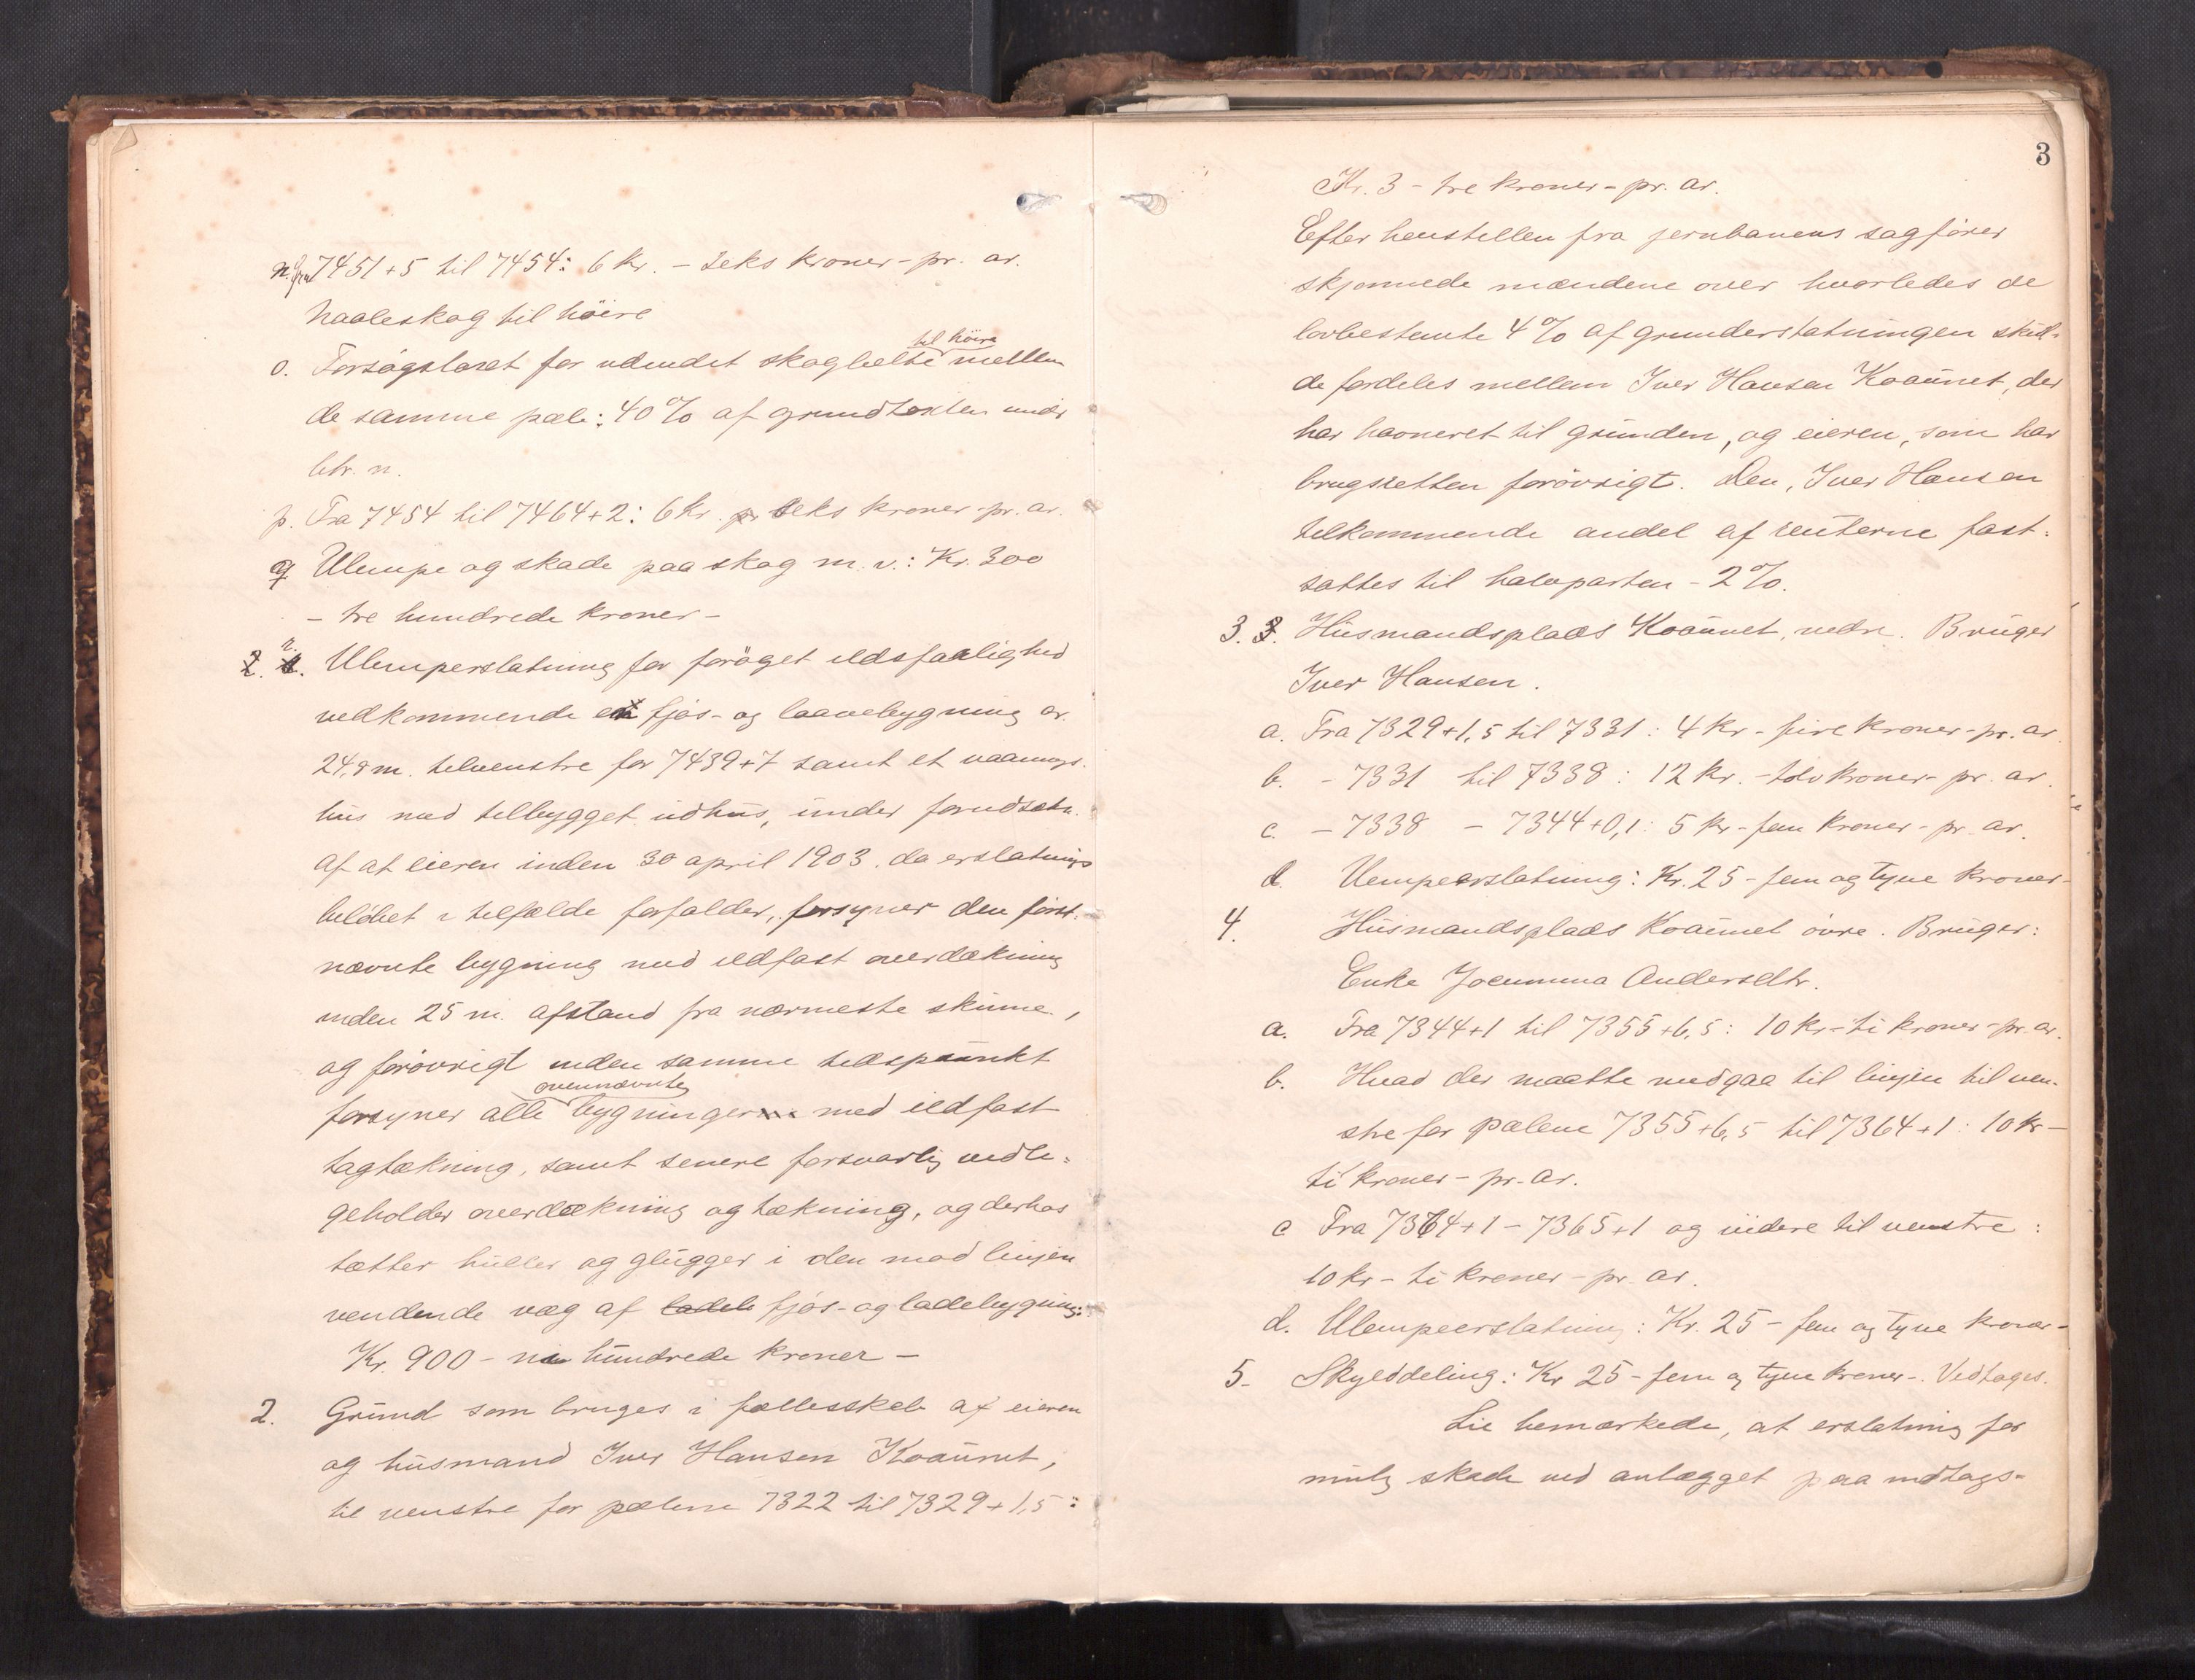 n. Fra 7451+5 til 7454: 6 kr. - seks kroner - pr. ar.
Naaleskog til höire
o. Forsøgstaxt for udendet skogbelte til höire mellem
de samme pæle: 40 % af grundtaxten under
litr. n.
p. Fra 7454 til 7464+2: 6 kr. seks kroner pr. ar.
q Ulempe og skade paa skog m. v.: Kr. 300
- tre hundrede kroner -
r. Ulemperstatning for foröget ildsfarlighed
vedkommende en fjøs- og laavebygning ca.
24,8 m. tilvenstre for 7439+7 samt et vaanings-
hus med tilbygget udhus, under forudsætn.
af at eieren inden 30 april 1903, da erstatnings
belöbet i tilfælde forfalder, forsyner den først-
nævnte bygning med ildfast overdækning
inden 25 m. afstand fra nærmeste skinne,
og forövrigt inden samme tidspunkt
forsyner alle ovennævnte bygninger med ildfast
tagtækning, samt senere forsvarlig vedli-
geholder overdækning og tækning, og derhos
tætter huller og glugger i den mod linjen
vendende væg af ladeb fjøs- og ladebygning:
Kr. 900 - ni hundrede kroner -
2. Grund som bruges i fællesskab af eieren
og husmand Iver Hansen Koaunet,
til venstre for pælene 7322 til 7329+1,5:
3
Kr. 3 - tre kroner - pr. ar.
Efter henstillen fra jernbanens sagfører
skjønnede mændene over hvorledes de
lovbestemte 4 % af grunderstatningen skul-
de fordeles mellem Iver Hansen Koaunet, der
har havneret til grunden, og eieren, som har
brugsretten forövrigt. Den, Iver Hansen
tilkommende andel af renterne fast-
sattes til halvparten - 2 %.
3. Husmandsplads Koaunet, nedre. Bruger
Iver Hansen.
a. Fra 7329+1,5 til 7331: 4 kr - fire kroner - pr. ar.
b. - 7331 til 7338: 12 kr. - tolv kroner - pr. ar.
c. - 7338 - 7344+0,1: 5 kr - fem kroner - pr. ar.
d. Ulempeerstatning: Kr. 25 - fem og tyve kroner -
4. Husmandsplads Koaunet övre. Bruger:
Enke Andersdtr.
a. Fra 7344+1 til 7355+6,5: 10 kr - ti kroner - pr. ar.
b. Hvad der maatte medgaa til linjen til ven-
stre for pælene 7355+6,5 til 7364+1: 10 kr -
ti kroner - pr. ar.
c Fra 7364+1 - 7365+1 og videre til venstre:
10 kr - ti kroner - pr. ar.
d. Ulempeerstatning: Kr. 25 - fem og tyve kroner -
5. Skylddeling: Kr 25 - fem og tyve kroner -. Vedtages.
Lie bemærkede, at erstatning for
mulig skade ved anlægget paa indtags-